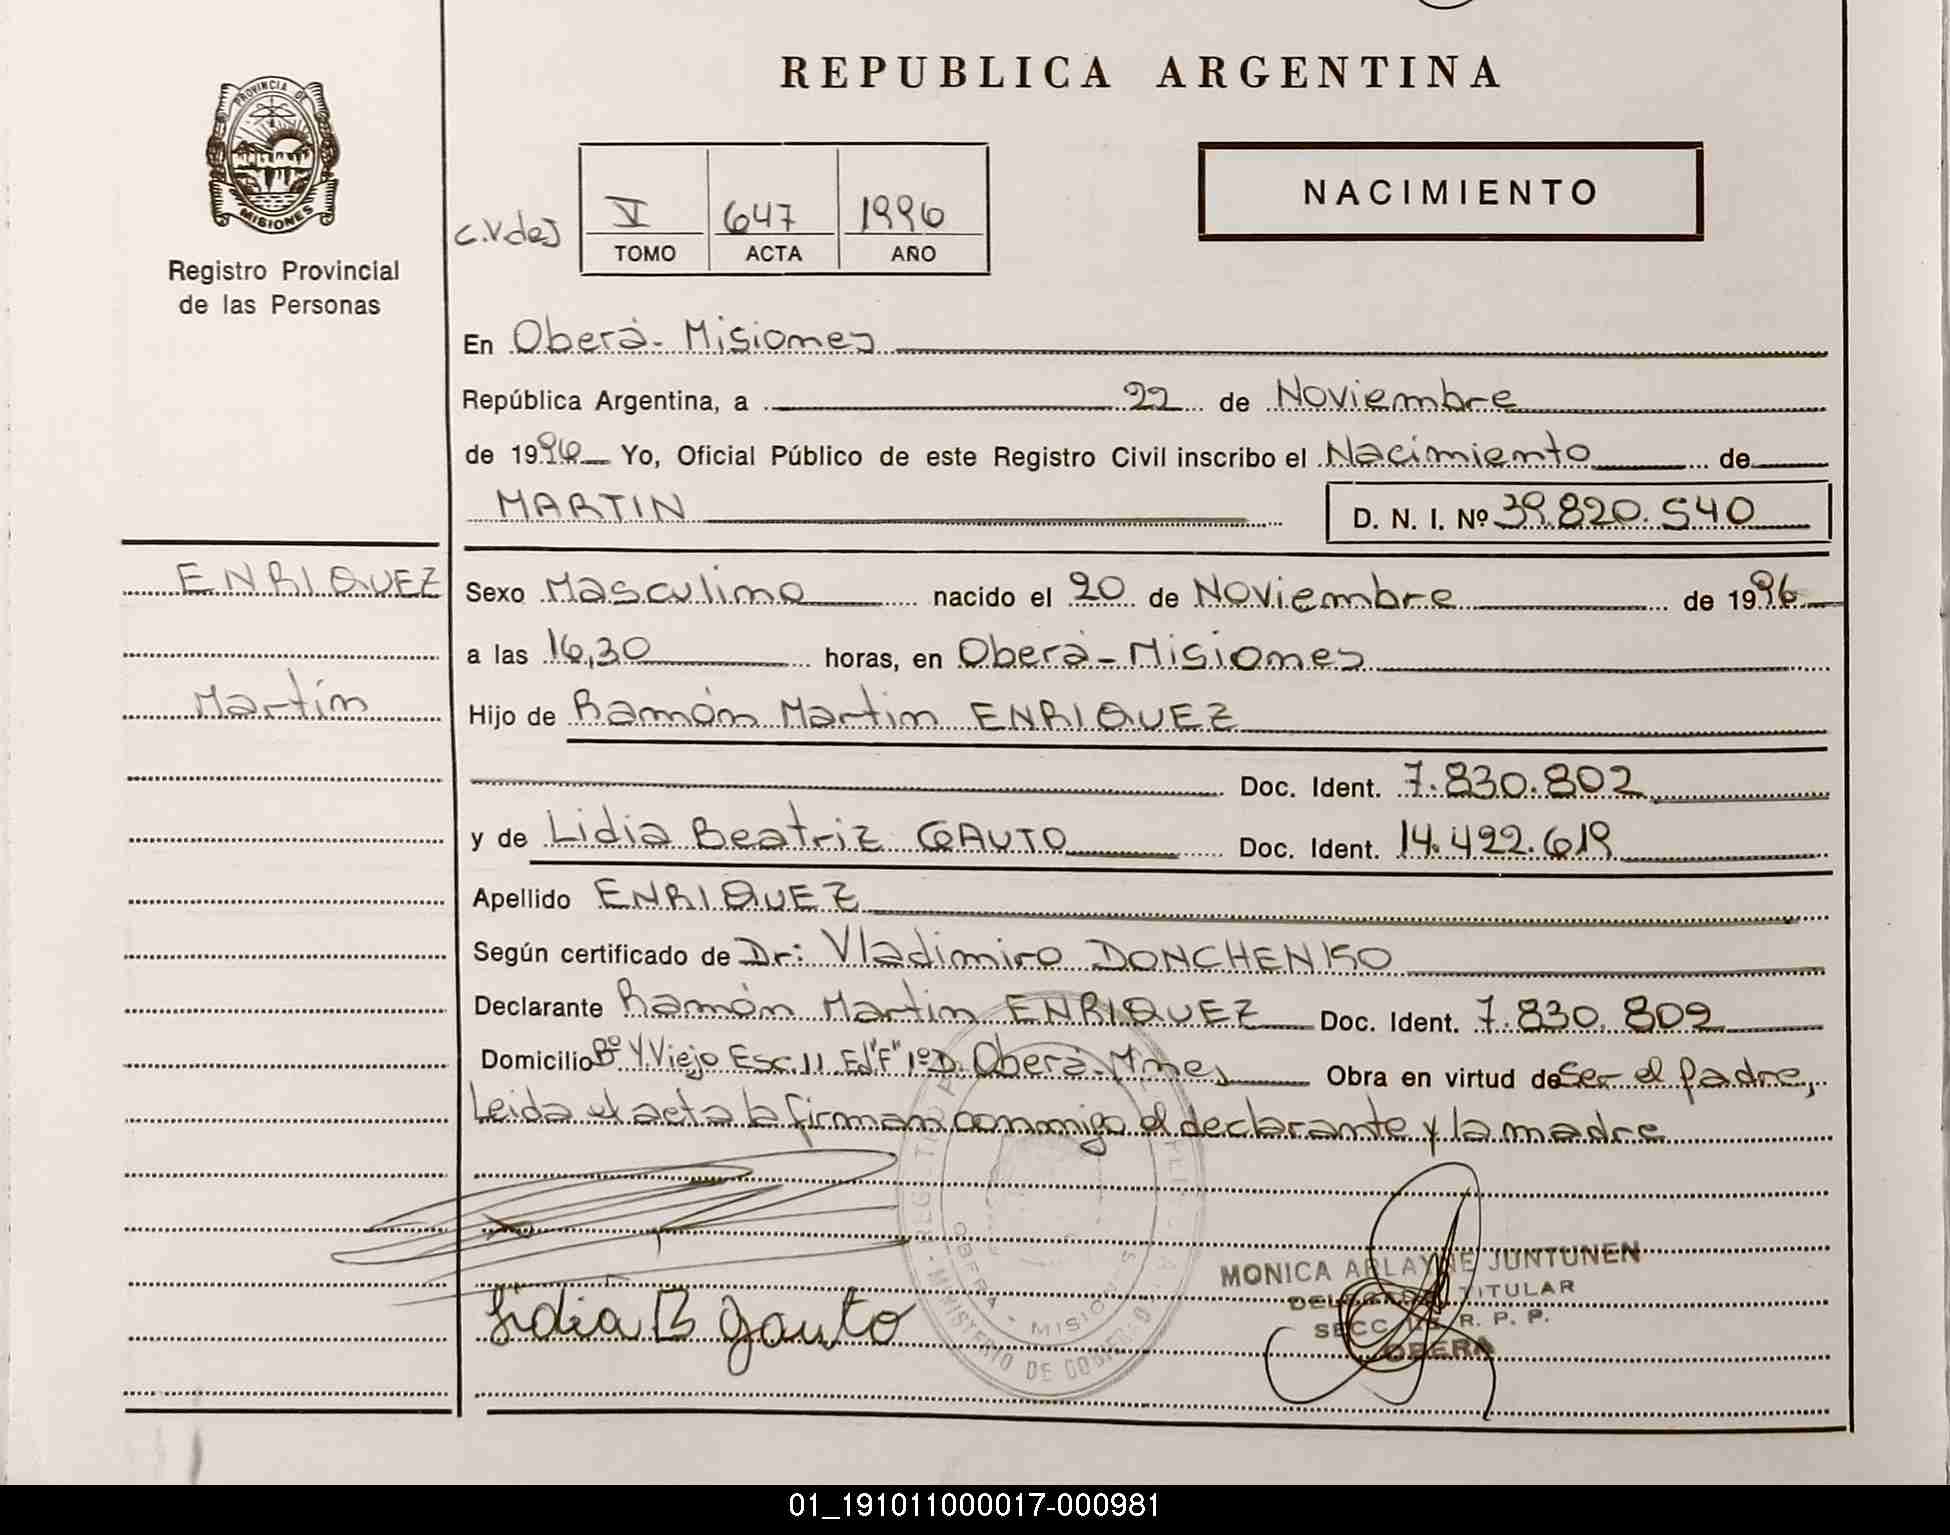 REPUBLICA ARGENTINA
PROVINCIA DE
MISIONES
Registro Provincial
de las Personas
C.Vdes
V 647 1996
TOMO ACTA AÑO
NACIMIENTO
En Oberá - Misiones
República Argentina, a 22 de Noviembre
de 1996 Yo, Oficial Público de este Registro Civil inscribo el Nacimiento de
MARTIN D. N. I. Nº 39.820.540
ENRIQUEZ
Martín
Sexo Masculino nacido el 20 de Noviembre de 1996
a las 16,30 horas, en Oberá - Misiones
Hijo de Ramón Martin ENRIQUEZ
Doc. Ident. 7.830.802
y de Lidia Beatriz GAUTO Doc. Ident. 14.422.619
Apellido ENRIQUEZ
Según certificado de Dr: Vladimiro
Declarante Ramón Martin ENRIQUEZ Doc. Ident. 7.830.802
Domicilio Bº Y. Viejo Esc. 11 Ed "F" 1º D. Oberá - Mnes Obra en virtud de Ser el padre,
Leida el acta la firman conmigo el declarante y la madre
Lidia B Gauto
OBERA - MISIONES
MINISTERIO DE GOBIERNO
MONICA ARLAYNE JUNTUNEN
DELEGADA TITULAR
SECC. R. P. P.
OBERA
01_191011000017-000981